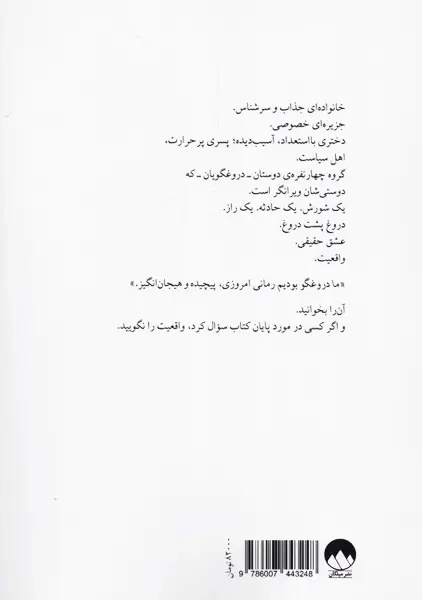 خانواده‌ای جذاب و سرشناس.
جزیره‌ای خصوصی.
دختری بااستعداد، آسیب‌دیده؛ پسری پرحرارت،
اهل سیاست.
گروه چهارنفره‌ی دوستان ـ دروغگویان ـ که
دوستی‌شان ویرانگر است.
یک شورش. یک حادثه. یک راز.
دروغ پشت دروغ.
عشق حقیقی.
واقعیت.
«ما دروغگو بودیم رمانی امروزی، پیچیده و هیجان‌انگیز.»
آن‌را بخوانید.
و اگر کسی در مورد پایان کتاب سؤال کرد، واقعیت را نگویید.
۸۲۰۰۰ تومان
9 786007 443248
نشر میلکان